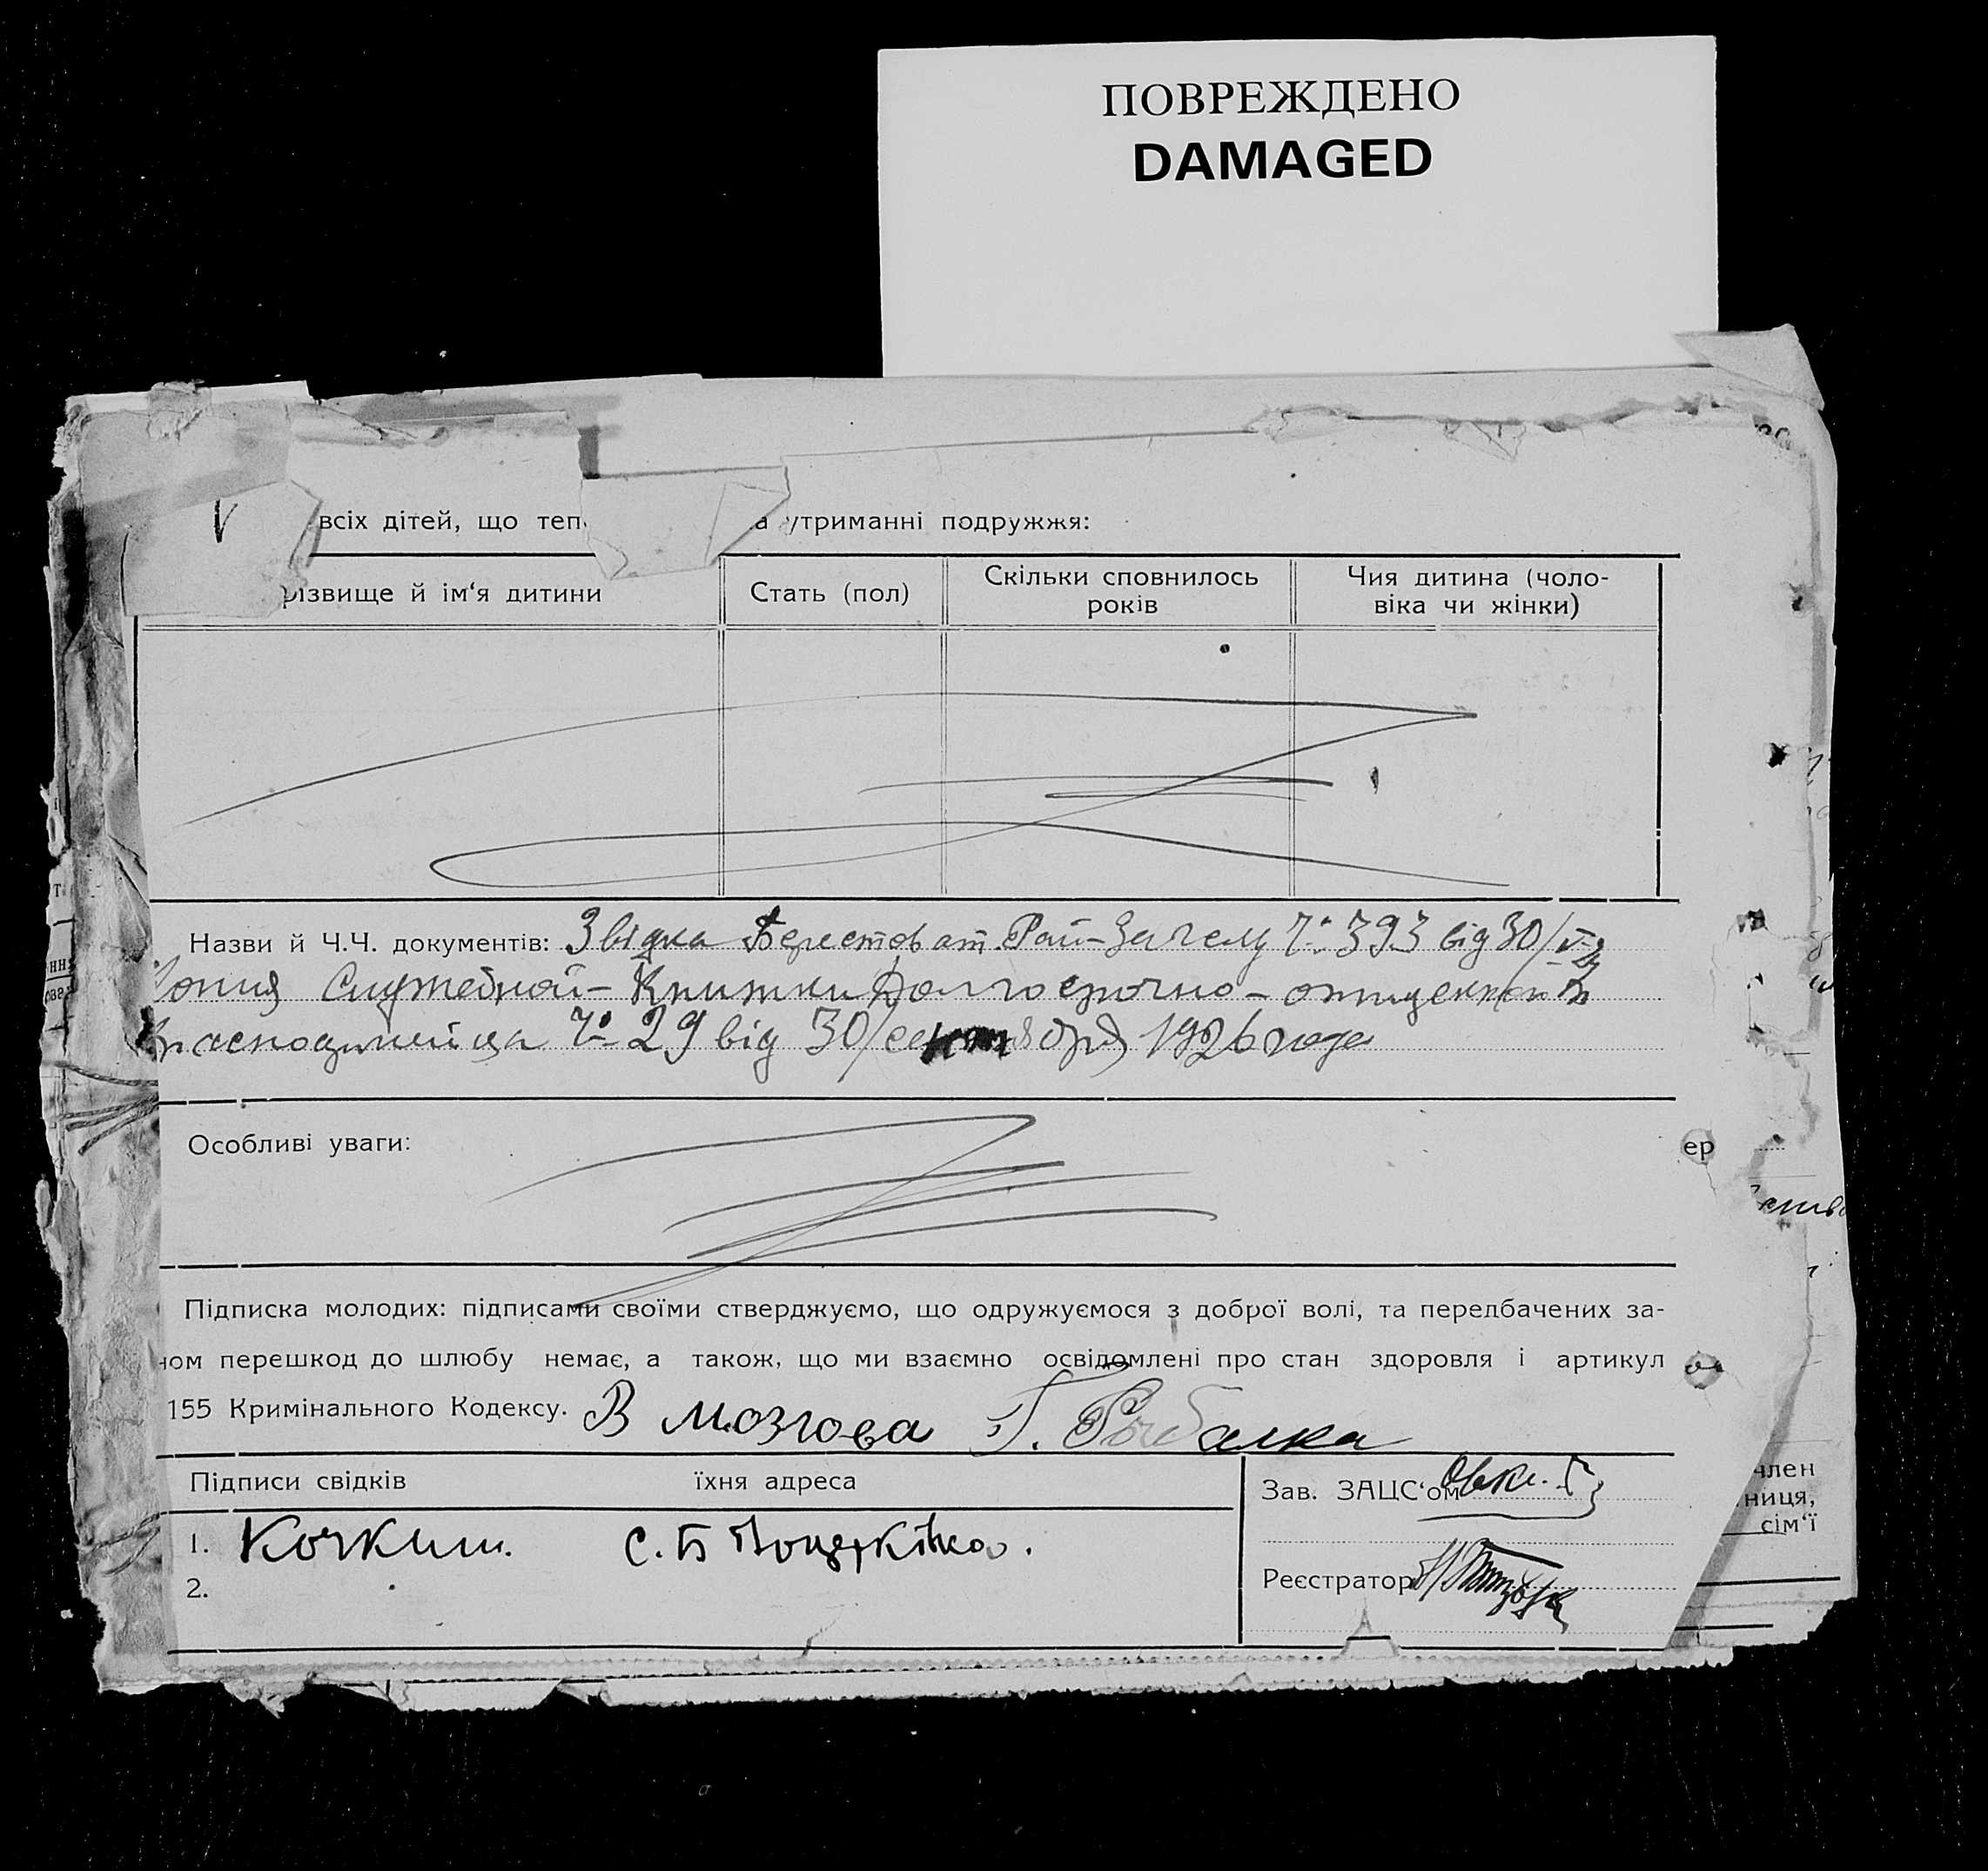 ПОВРЕЖДЕНО
DAMAGED
всіх дітей, що теп
а утриманні подружжя:
різвище й ім‘я дитини
Стать (пол)
Скільки сповнилось
років
Чия дитина (чоло-
віка чи жінки)
Назви й Ч.Ч. документів: Звідка 393 від 30/
Служебной - Книжки Долгосрочно -
Ч° 29 від 30/сентября 1926 года
Особливі уваги:
ер
Підписка молодих: підписами своїми стверджуємо, що одружуємося з доброї волі, та передбачених за-
ном перешкод до шлюбу немає, а також, що ми взаємно освідомлені про стан здоровля і артикул
155 Кримінального Кодексу. В Мозгова Г. Рыбалка
Підписи свідків
їхня адреса
Зав. ЗАЦС‘ом
1. С. Б
2.
Реєстратор
член
ниця,
сім‘ї